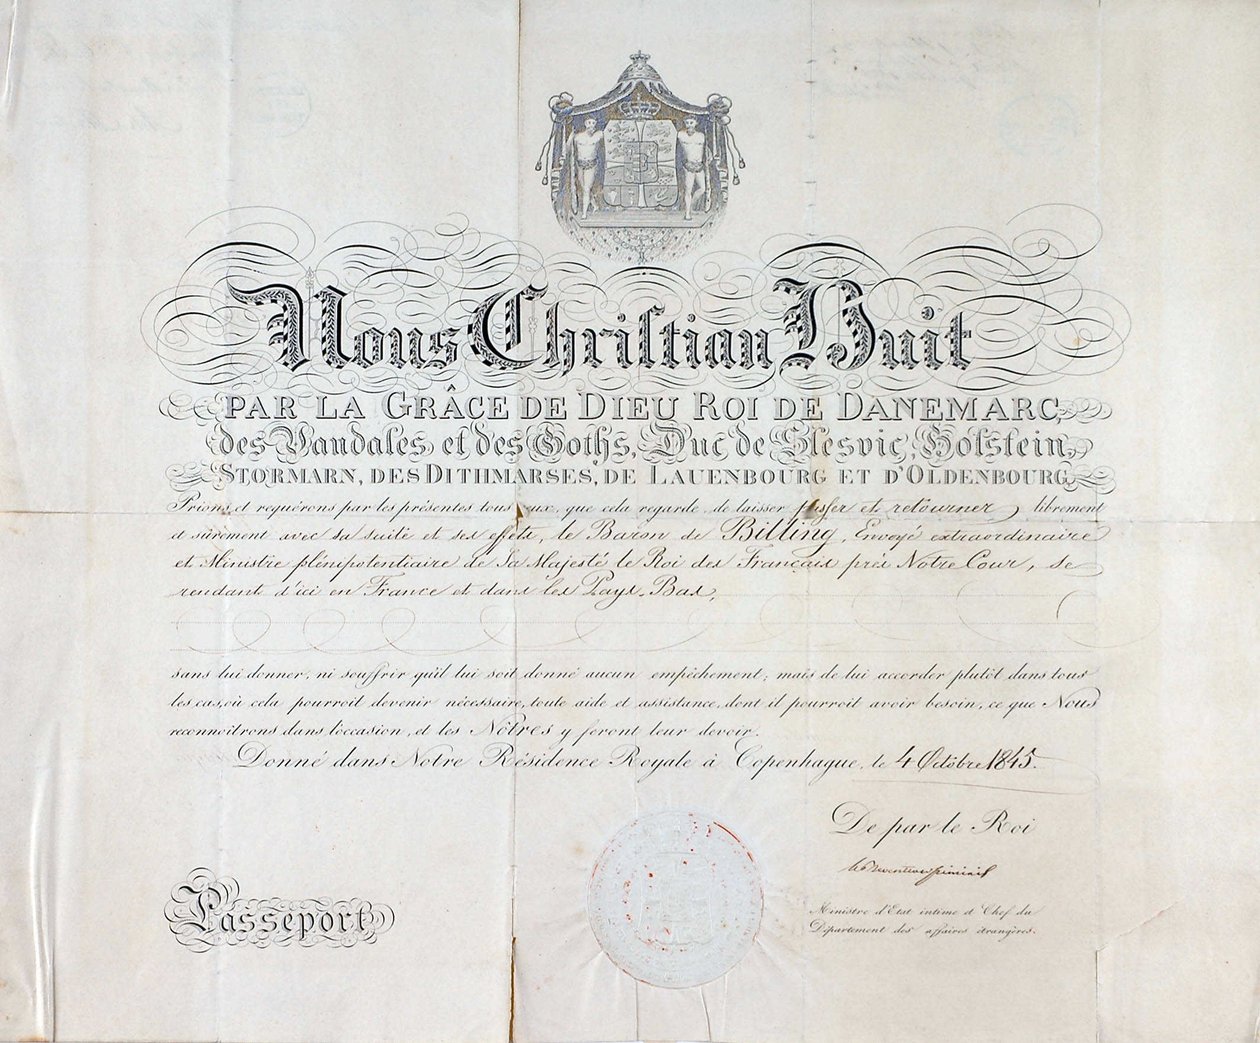 Nous Chriſtian Huit
PAR LA GRÂCE DE DIEU ROI DE DANEMARC,
des Vandales et des Goths, Duc de Slesvic, Holstein,
STORMARN, DES DITHMARSES, DE LAUENBOURG ET D'OLDENBOURG,
Prions et requérons par les présentes tous ceux, que cela regarde, de laisser passer et retourner, librement
et sûrement avec sa suite et ses effets, le Baron de Billing, Envoyé extraordinaire
et Ministre plénipotentiaire de Sa Majesté le Roi des Français près Notre Cour, se
rendant d'ici en France et dans les Pays-Bas,
sans lui donner, ni souffrir qu'il lui soit donné aucun empêchement; mais de lui accorder plutôt dans tous
les cas, où cela pourroit devenir nécessaire, toute aide et assistance, dont il pourroit avoir besoin, ce que Nous
reconnoitrons dans l'occasion, et les Nôtres y feront leur devoir.
Donné dans Notre Résidence Royale à Copenhague, le 4 Octobre 1845.
De par le Roi
Ministre d'Etat intime et Chef du
Département des affaires étrangères.
Passeport